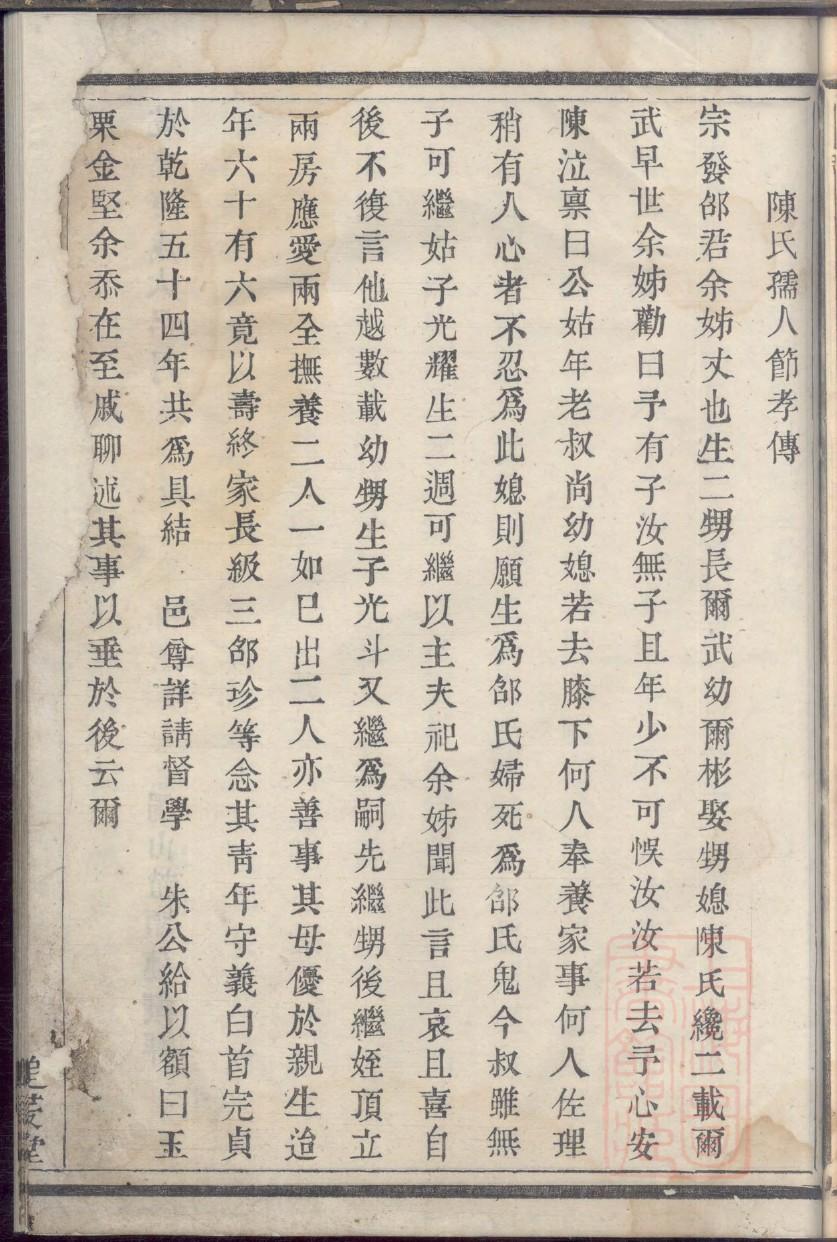 陳氏孺人節孝傳
宗發郃君余姊丈也生二甥長爾武幼爾彬娶甥媳陳氏纔二載爾
武早世余姊勸曰予有子汝無子且年少不可悞汝汝若去予心安
陳泣禀曰公姑年老叔尚幼媳若去膝下何人奉養家事何人佐理
稍有人心者不忍爲此媳則願生爲郃氏婦死爲郃氏鬼今叔雖無
子可繼姑子光耀生二週可繼以主夫祀余姊聞此言且哀且喜自
後不復言他越數載幼甥生子光斗又繼爲嗣先繼甥後繼姪頂立
兩房應愛兩全撫養二人一如巳出二人亦善事其母優於親生迨
年六十有六竟以壽終家長級三郃珍等念其靑年守義白首完貞
於乾隆五十四年共爲具結 邑尊詳請督學 朱公給以額曰玉
栗金堅余忝在至戚聊述其事以垂於後云爾